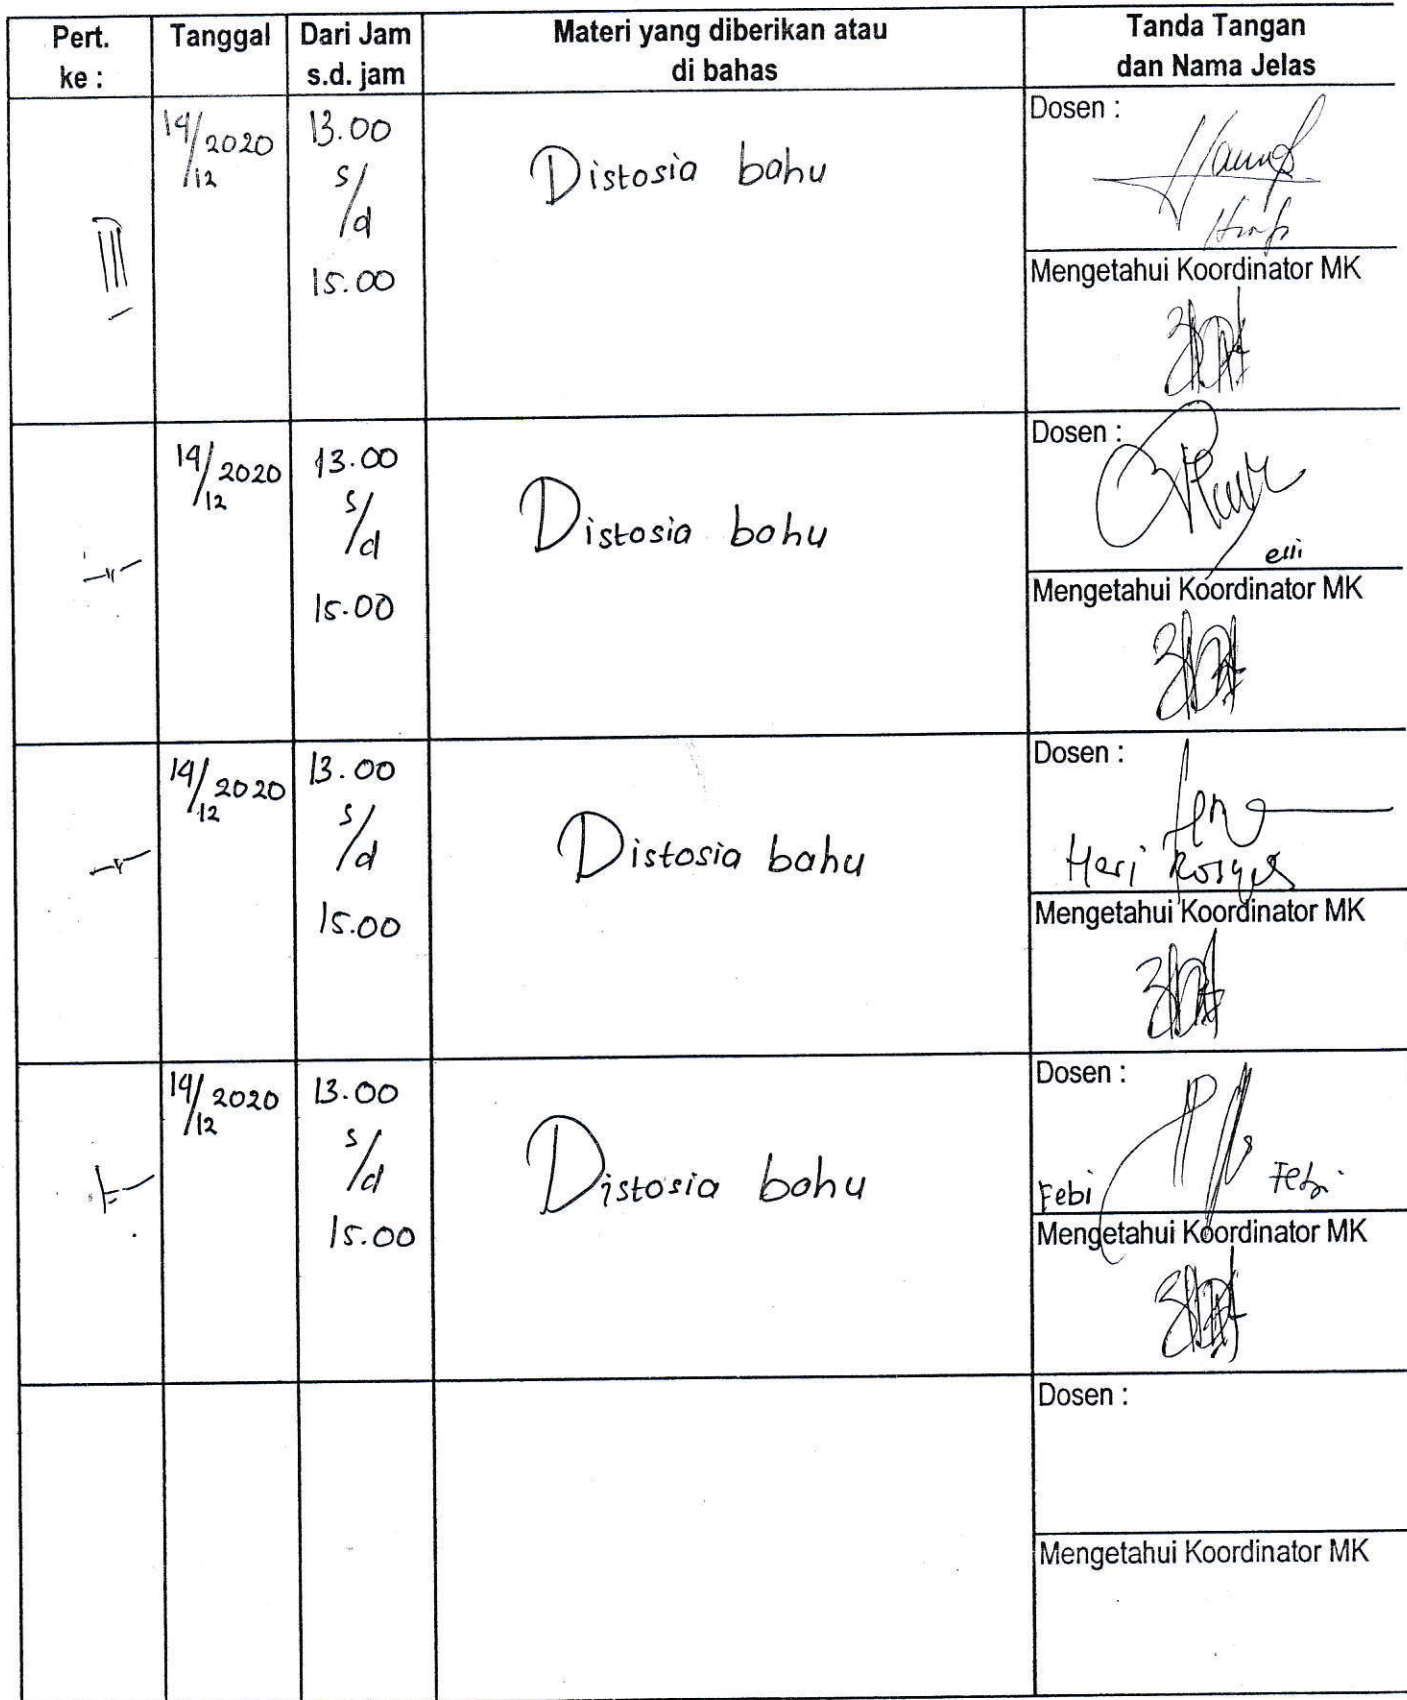 Pert.
ke :
Tanggal
Dari Jam
s.d. jam
Materi yang diberikan atau
di bahas
Tanda Tangan
dan Nama Jelas
III
14/12 2020
13.00
s/d
15.00
Distosia bahu
Dosen :
Mengetahui Koordinator MK
14/12 2020
13.00
s/d
15.00
Distosia bahu
Dosen :
elli
Mengetahui Koordinator MK
14/12 2020
13.00
s/d
15.00
Distosia bahu
Dosen :
Heri
Mengetahui Koordinator MK
14/12 2020
13.00
s/d
15.00
Distosia bahu
Dosen :
Febi Febi
Mengetahui Koordinator MK
Dosen :
Mengetahui Koordinator MK